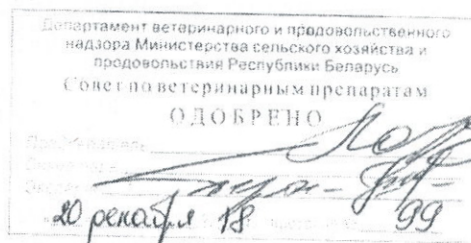 Департамент ветеринарного и продовольственного
надзора Министерства сельского хозяйства и
продовольствия Республики Беларусь
Совет по ветеринарным препаратам
ОДОБРЕНО
Председатель
20 декабря 18 99